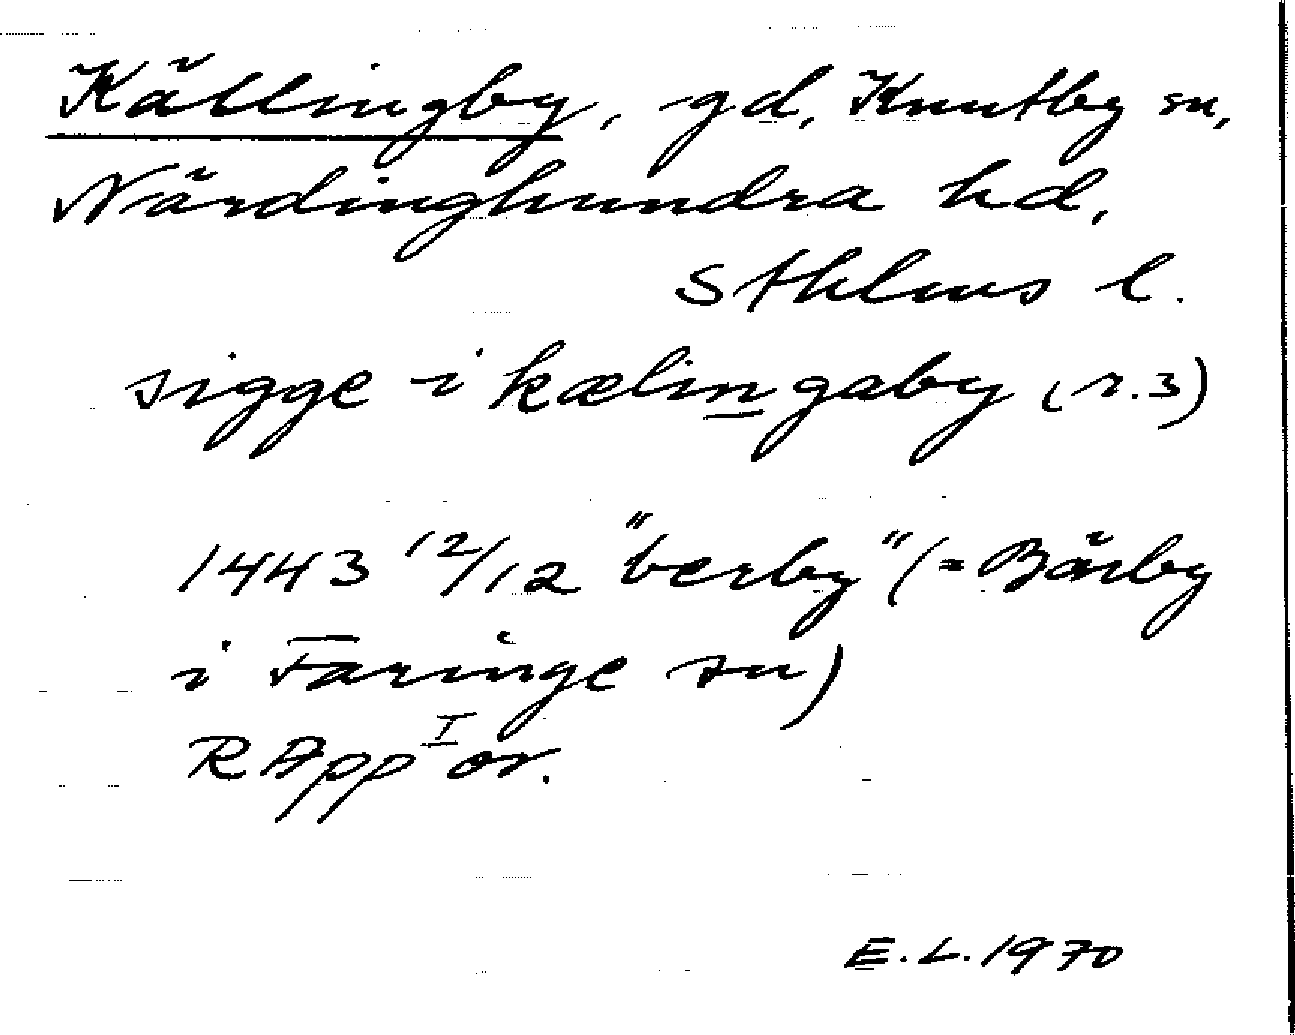 Källingby, gd, Knutby sn,
Närdinghundra hd,
Sthlms l.
sigge i kælingaby (r.3)
1443 12/12 "berby" (= Bärby
i Faringe sn)
RApp I or.
E.L.1970